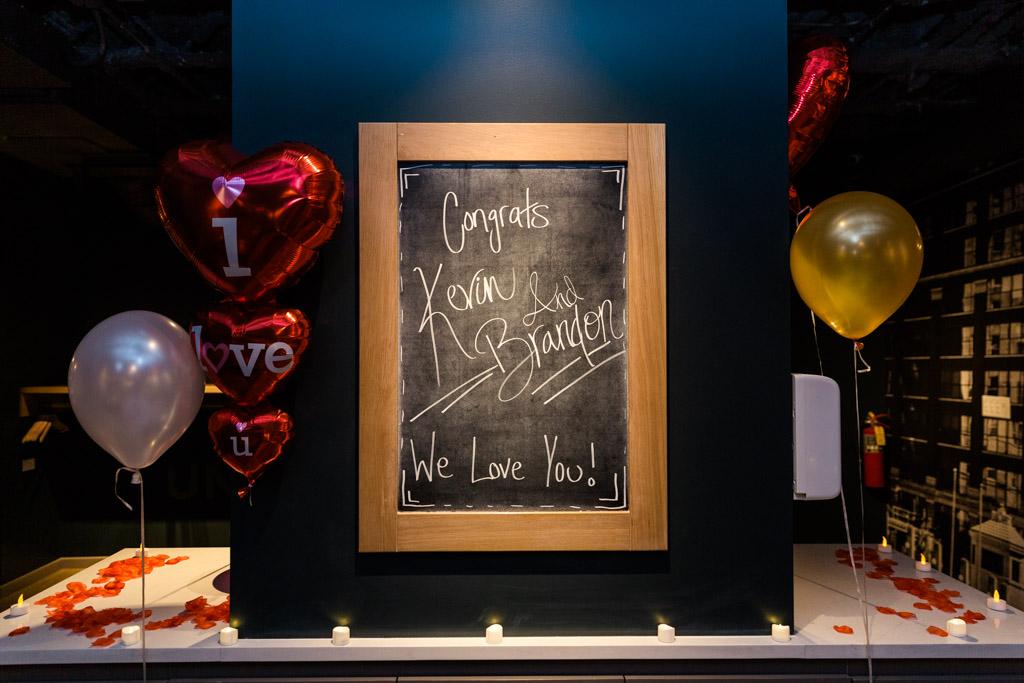 I
love
u
Congrats
Kevin And
Brandon
We Love You!